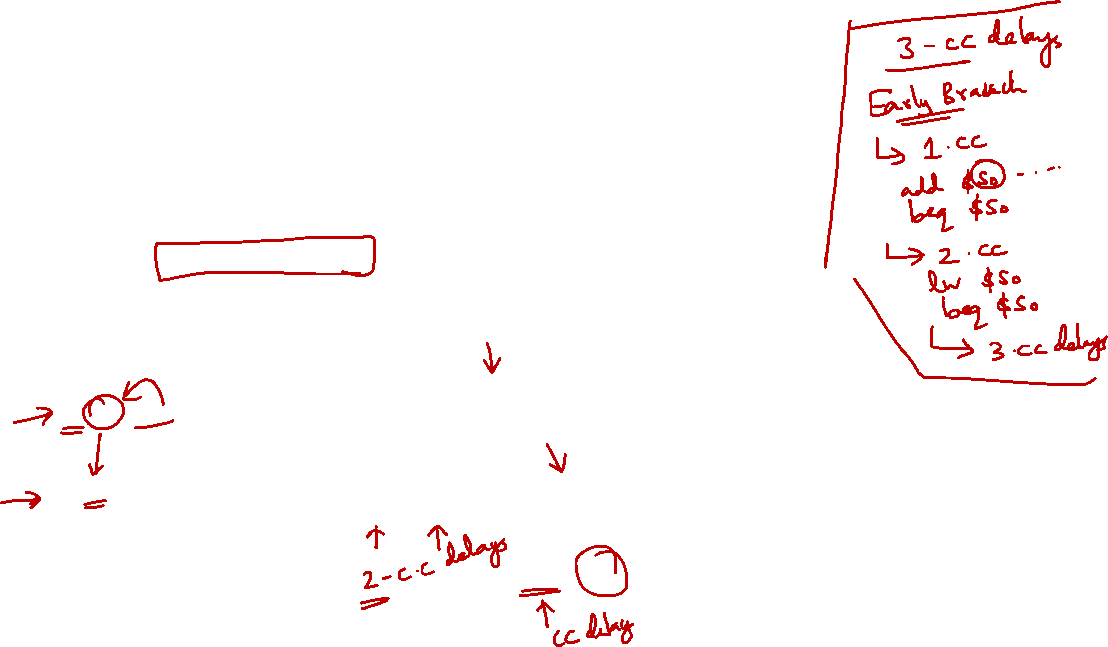 3-cc delays
Early Branch
1.cc
add $S0 - - - -
beq $S0
2.cc
lw $S0
beq $S0
3.cc delays
2-c.c delays
cc delay